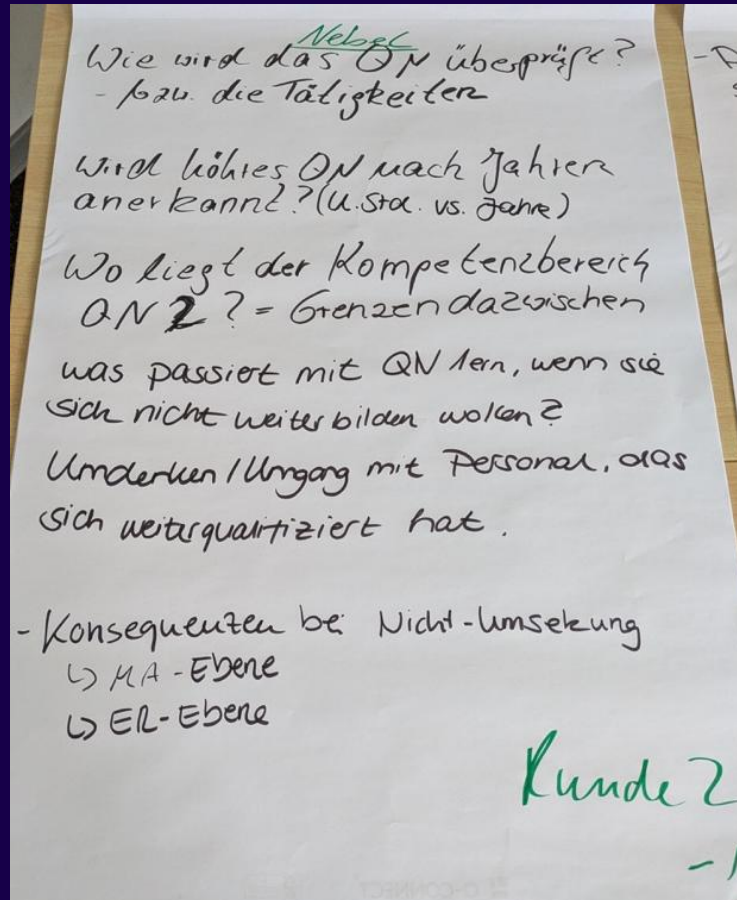 Nebel
Wie wird das QN überprüft?
- bzw. die Tätigkeiten
wird höhres QN nach Jahren
anerkannt? (U.Std. vs. Jahre)
Wo liegt der Kompetenzbereich
QN2? = Grenzen dazwischen
was passiert mit QN1ern, wenn sie
sich nicht weiterbilden wollen?
Umdenken/Umgang mit Personal, das
sich weiterqualifiziert hat.
- Konsequenzen bei Nicht-Umsetzung
↳ MA-Ebene
↳ ER-Ebene
Runde 2